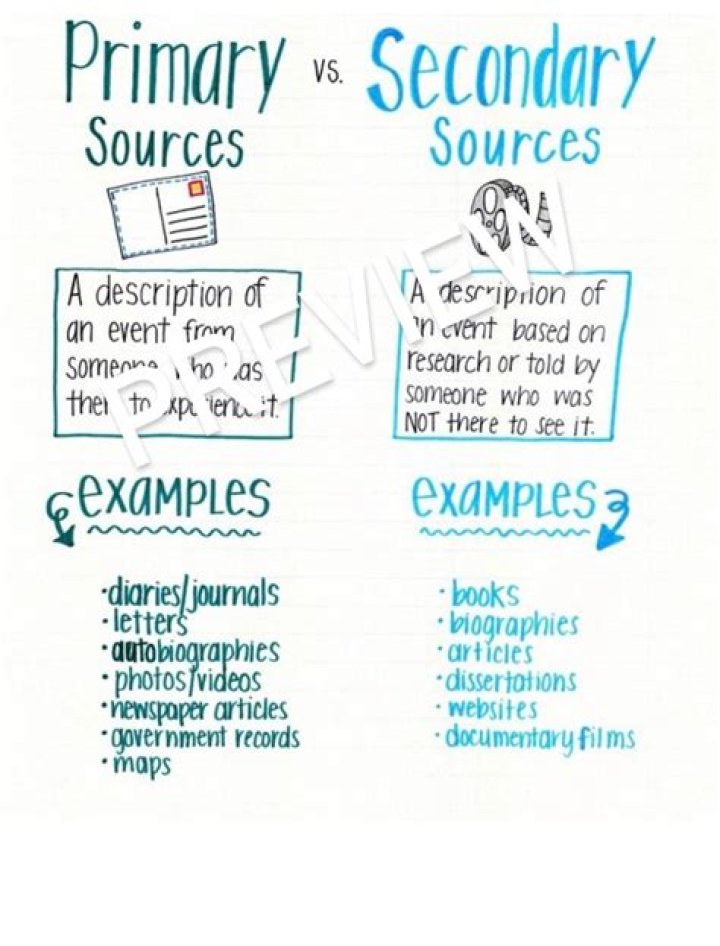 Primary vs. Secondary
Sources Sources
A description of
an event from
someone who was
there to experience it.
A description of
an event based on
research or told by
someone who was
NOT there to see it.
PREVIEW
examples
•diaries/journals
•letters
•autobiographies
•photos/videos
•newspaper articles
•government records
•maps
examples
•books
•biographies
•articles
•dissertations
•websites
•documentary films